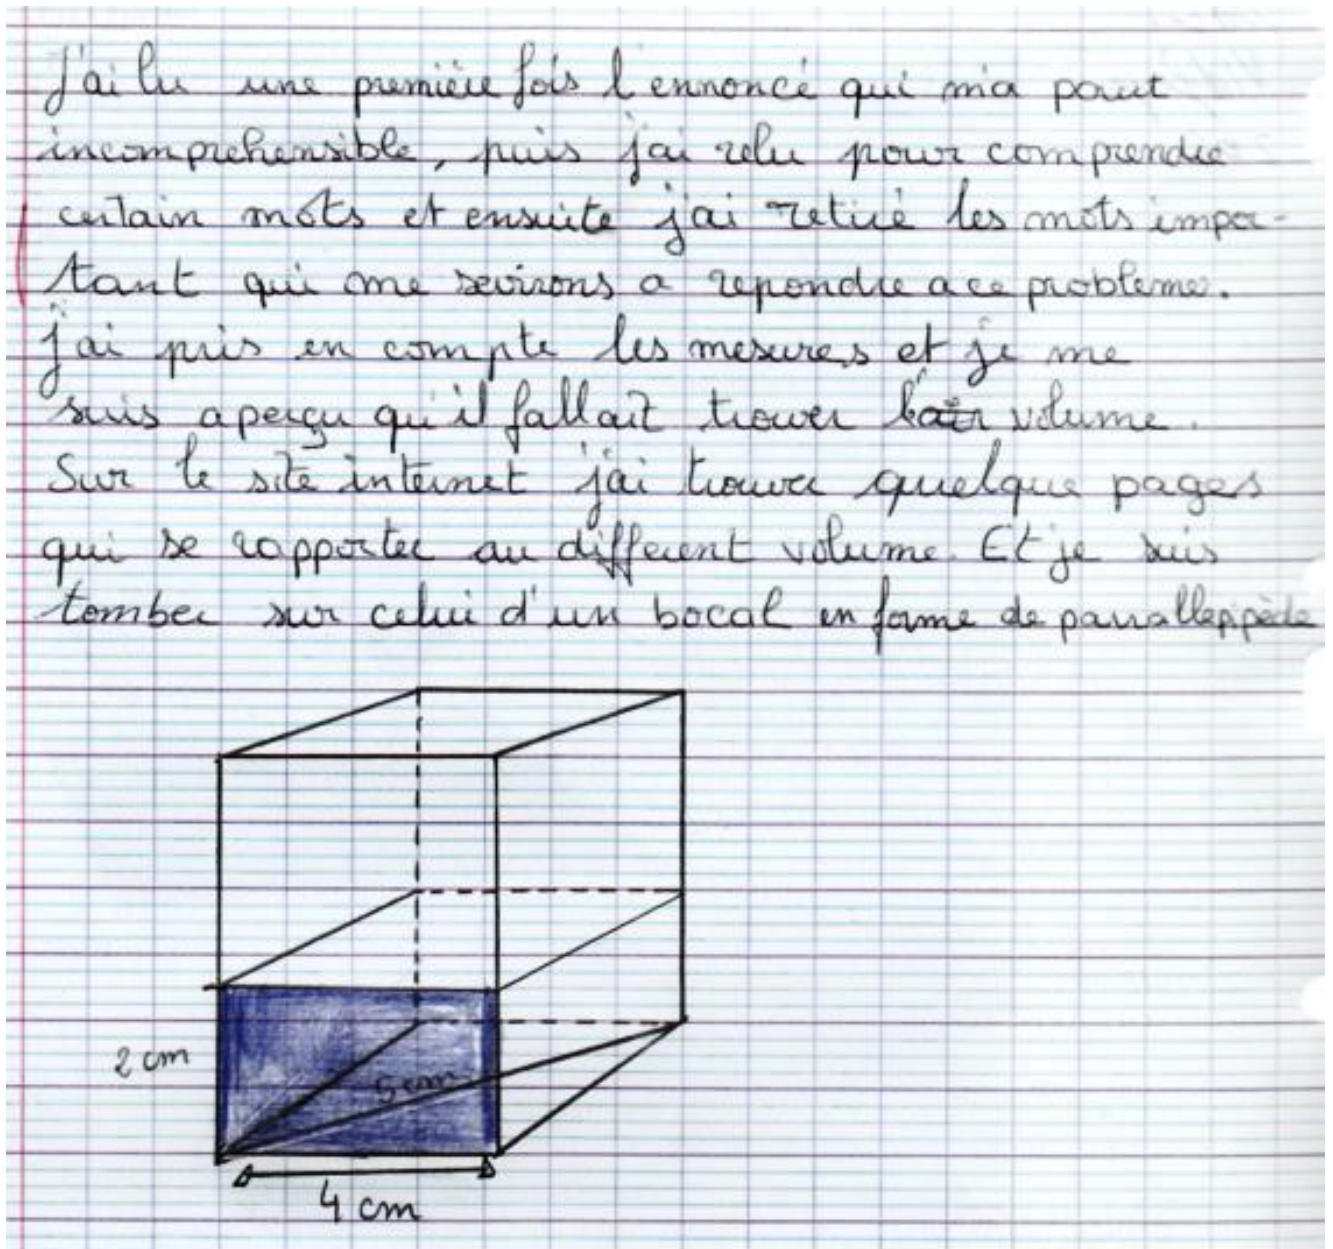 J'ai lu une première fois l'ennoncé qui m'a parut
incomprehensible, puis j'ai relu pour comprendre
certain mots et ensuite j'ai retiré les mots impor-
tant qui me servirons a repondre a ce probleme.
j'ai pris en compte les mesures et je me
suis aperçu qu'il fallait trouver volume.
Sur le site internet j'ai trouver quelque pages
qui se rapporter au different volume. Et je suis
tomber sur celui d'un bocal en forme de parrallepipède
2 cm
5 cm
4 cm